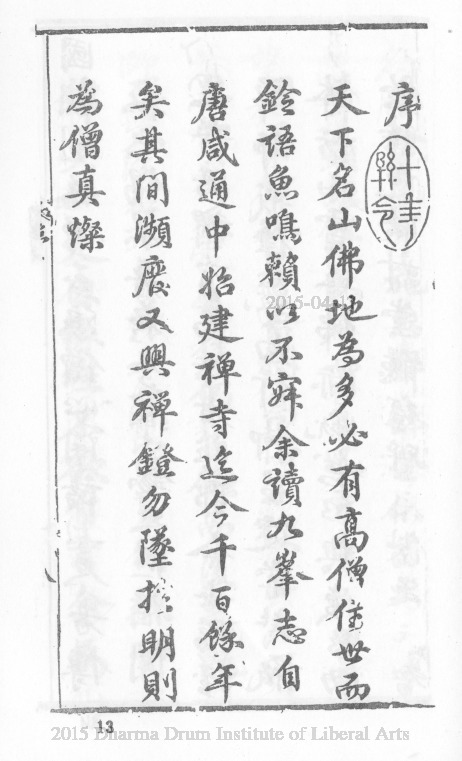 序
天下名山佛地為多必有高僧住世而
鈴語魚鳴賴以不寂余讀九峯志自
唐咸通中始建禪寺迄今千百餘年
矣其間瀕廢又興禪鐙勿墜於明則
為僧真燦
13
2015-04-1
2015 Dharma Drum Institute of Liberal Arts